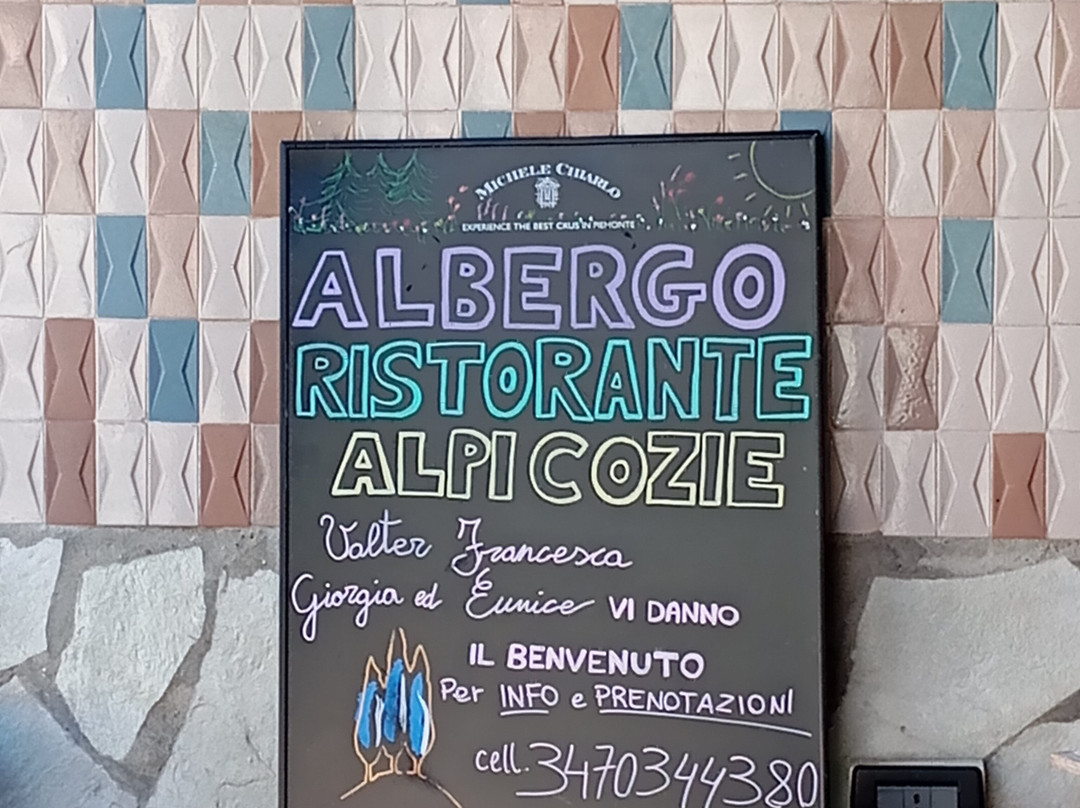 MICHELE CHIARLO
EXPERIENCE THE BEST CRUS IN PIEMONTE
ALBERGO
RISTORANTE
ALPI COZIE
Valter Francesca
Giorgia ed Eunice VI DANNO
IL BENVENUTO
Per INFO e PRENOTAZIONI
cell. 3470344380